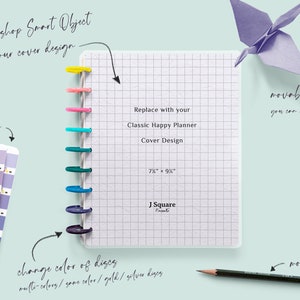 shop Smart Object
our cover design
Replace with your
Classic Happy Planner
Cover Design
7¾" × 9¾"
J Square
movab
you can
change color of discs
multi-colors / same color / gold / silver discs
mo